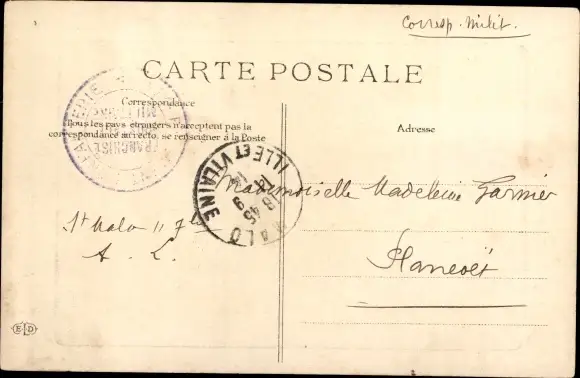 Corresp. Milit.
CARTE POSTALE
Correspondance
Tous les pays étrangers n'acceptent pas la
correspondance au recto, se renseigner à la Poste
Adresse
FRANÇAISE
ILLE ET VILAINE
MALO
18 45
Mademoiselle Madeleine Garnier
St Malo 11 7bre
A. L.
Plancoët
ELD